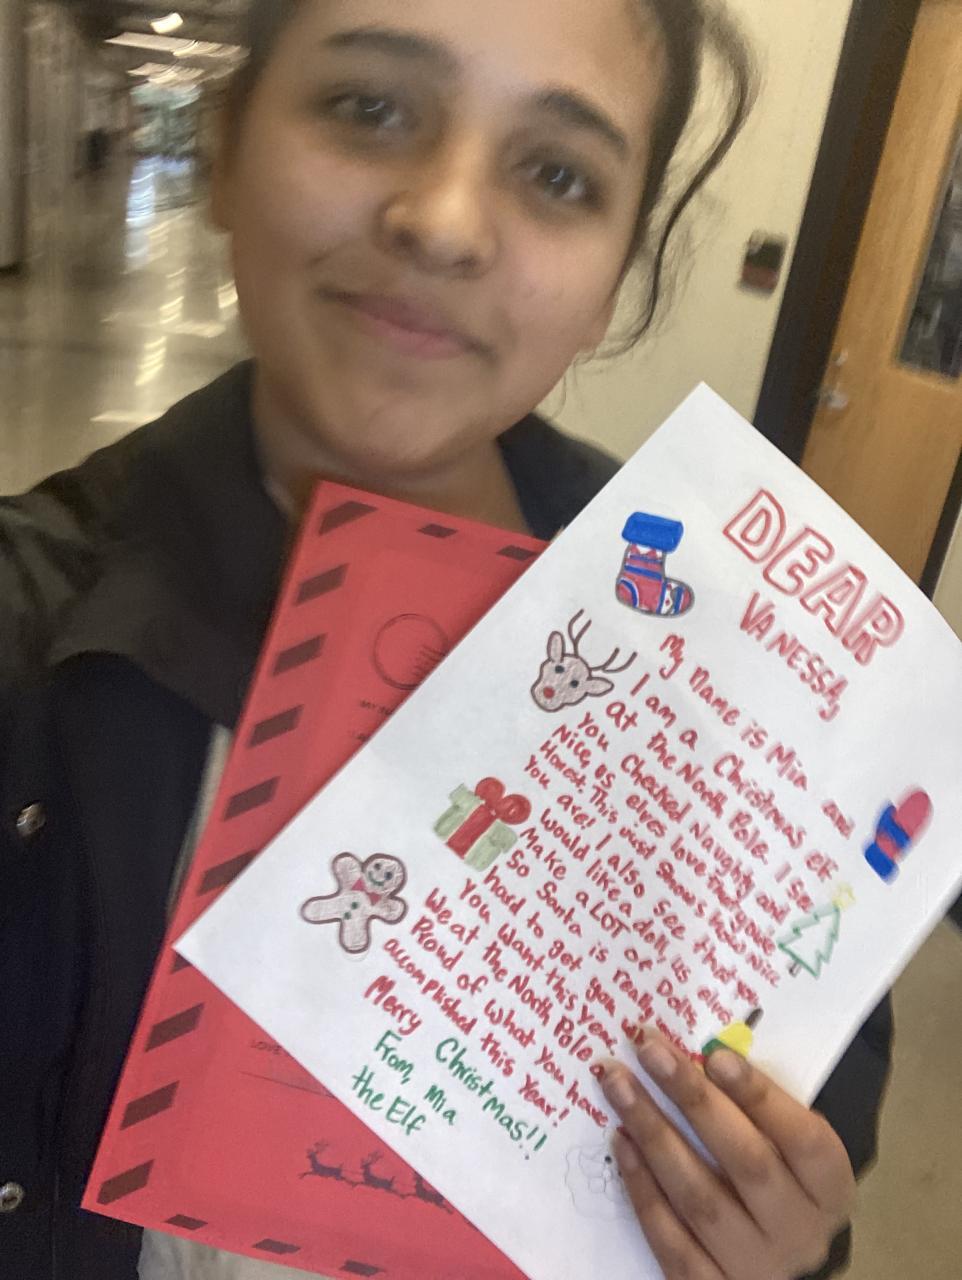 DEAR
VANESSA,
My name is Mia and
I am a Christmas elf
at the North Pole. I see
You Checked Naughty and
Nice, us elves love that you're
Honest. This just shows how Nice
You are! I also see that you
would like a doll, us elves
Make a LOT of Dolls,
So Santa is really
hard to get you
You want this year
We at the North Pole
Proud of what you have
accomplished this year!
Merry Christmas!!
From, Mia
the Elf